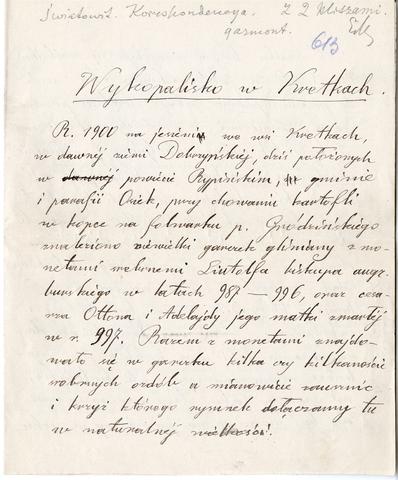 Światowit. Korespondencya. z 2 kliszami.
garmont.
613
Wykopalisko w Kretkach.
R. 1900 na jesieni we wsi Kretkach,
w dawnéj ziemi Dobrzyńskiéj, dziś położonych
w dawnéj powiecie Rypińskim, gminie
i parafii Osiek, przy chowaniu kartofli
w kopce na folwarku p. Gródzińskiego
znaleziono niewielki garnek gliniany z mo-
netami srebrnemi Liutolfa biskupa augs-
burskiego w latach 987 — 996, oraz cesa-
rza Ottona i Adelajdy jego matki zmarłéj
w r. 997. Razem z monetami znajdo-
wało się w garnku kilka czy kilkanaście
srebrnych ozdób a mianowicie zausznic
i krzyż którego rysunek dołączamy tu
w naturalnéj wielkości.